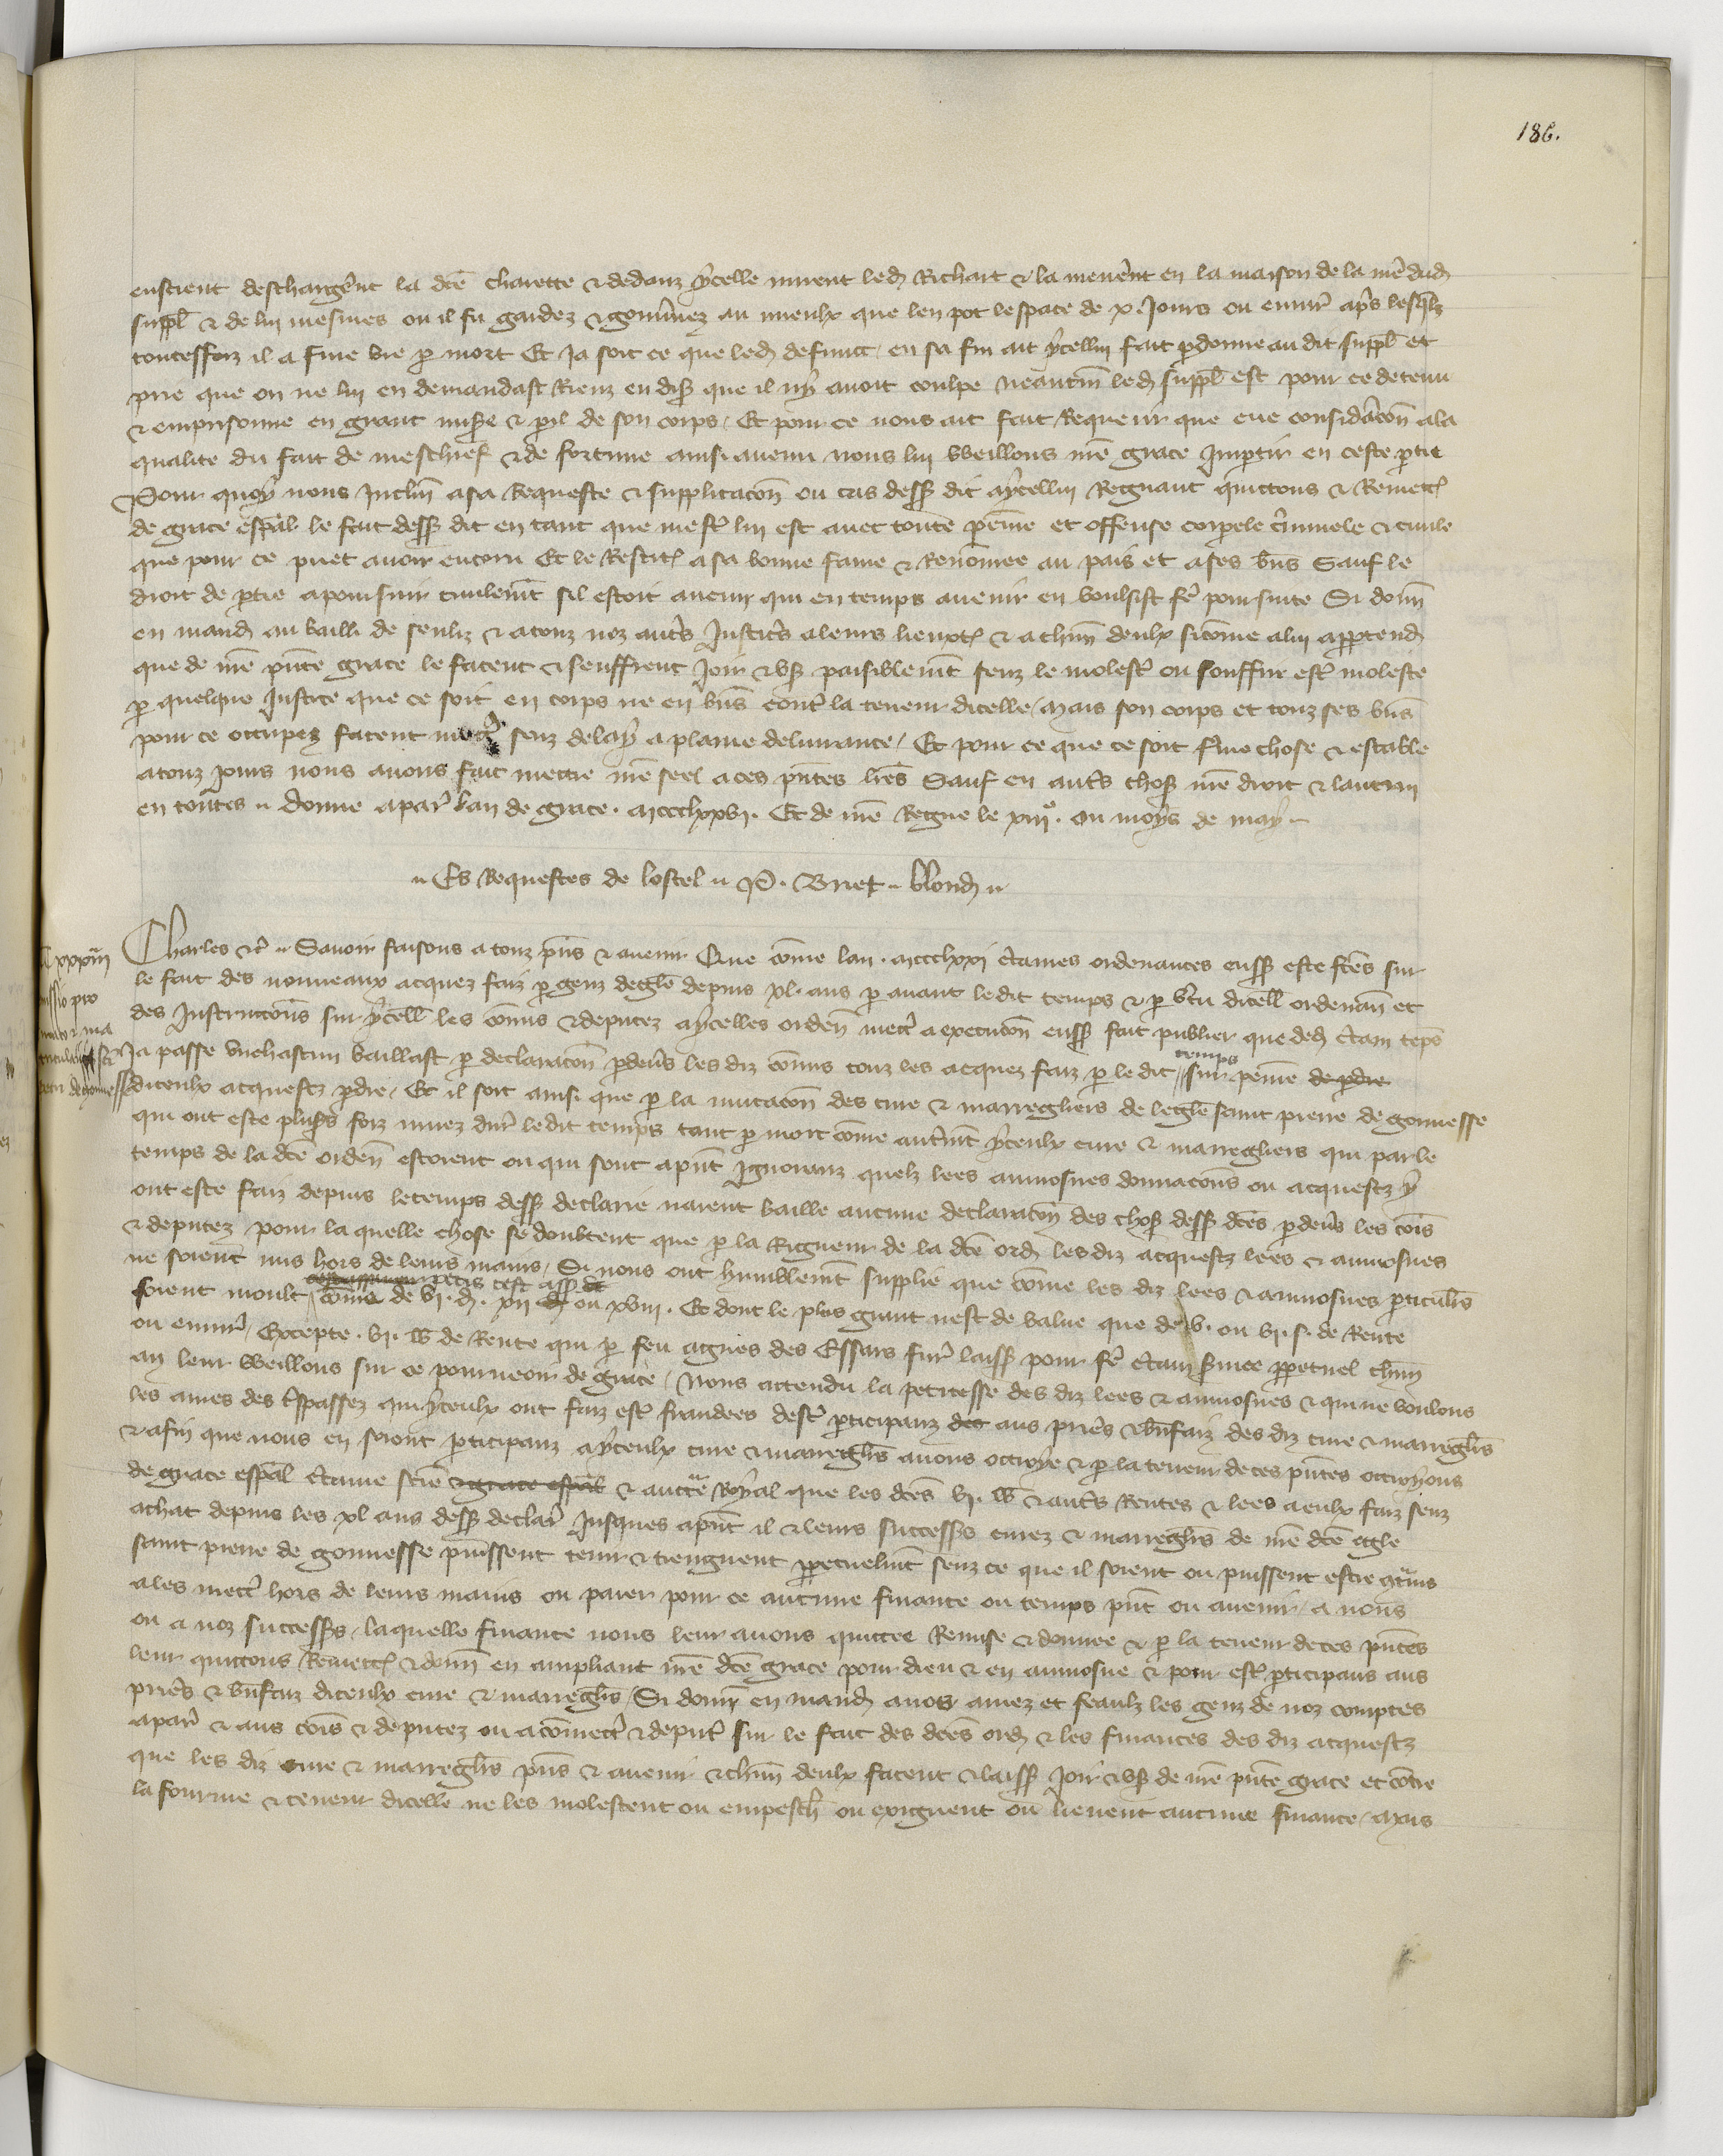 186.
enscient deschargerent la dcē charette & dedanz ycelle mirent led Richart & la menerent en la maison de la mē dud
suppl & de lui mesmes ou il fu gardez & gouvnez au mieulx que len pot lespace de x. Jours ou envir aps lesqlz
toutesfoiz il a fine vie p mort Et Ja soit ce que led defunct en sa fin ait ycellui fait pdonne au dit suppl et
prie que on ne lui en demandast Rienz en disp que il ny avoit coulpe neantm led suppl est pour ce detenu
& emprisonne en grant misere & pil de son corps / Et pour ce nous ait fait Requerir que eue considacon ala
qualite du fait de meschief & de fortune ainsi avenu nous lui vveillons nrē grace Impartir en ceste ptie
Pour quoy nous Inclin asa Requeste & supplicacon ou cas dess dit aycellui Regnaut quittons & Remett
de grace espal le fait dess dit en tant que mesf lui est avec toute peine et offense corpele criminele & civile
que pour ce puet avoir encoru Et le Restit asa bonne fame & Renomee au pais et ases bns Sauf le
droit de ptie apoursuir civilemt sil estoit aucun qui en temps avenir en voulsist fe poursuite Si donn
en mand au bailli de senliz & atouz noz auts Justicrs aleurs lieuxt & achun deulx sicome alui apptend
que de nrē pnte grace le facent & seuffrent Joir & usr paisiblemt senz le molest ou souffrir est moleste
p quelque Justice que ce soit en corps ne en bns contr la teneur dicelle / Mais son corps et touz ses bns
pour ce occupez facent mettr senz delay a plaine delivrance / Et pour ce que ce soit fme chose & estable
atouz jours nous avons fait mettre nrē seel a ces pntes lres Sauf en auts chos nrē droit & lautrui
en toutes .. donne apar lan de grace . mccclxxvi . Et de nrē Regne le xiii° . ou moys de may ..
.. Es Requestes de lostel .. P. Briet .. blond ..
Charles &c .. Savoir faisons a touz pns & avenir Que cōme lan . mccclxxi ctaines ordenances euss este ftes sur
le fait des nouveaux acquez faiz p genz deglē depuis xl. ans p avant ledit temps & p vtu dicell ordenan et
des Instruccons sur ycell les cōmis & deputez aycelles orden mettr a execucon euss fait publier que ded ctain teps
Ja passe un chascun baillast p declaracon pdevs les diz cōmis touz les acquez faiz p le dit temps sur peine de pdre
diceulx acquestz pdre / Et il soit ainsi que p la mutacon des cure & marregliers de leglē saint pierre de gonnesse
qui ont este plus foiz muez dur ledit temps tant p mort cōme autmt yceulx cure & marregliers qui par le
temps de la dcē orden estoient ou qui sont apnt Ignoranz quelz lees aumosnes donnacons ou acquestz y
ont este faiz depuis le temps dess declarie naient baille aucune declaracon des chos dess dces pdevs les cōis
& deputez pour la quelle chose se doubtent que p la Rigueur de la dcē ord les diz acquestz lees & aumosnes
ne soient mis hors de leurs mains / Si nous ont humblemt supplie que cōme les diz lees & aumosnes pticulrs
soient moult petis cest ass de vi. d. xii ou xviii. Et dont le plus grant nest de value que de v. ou vi. s. de Rente
ou envir / Excepte . vi. lb de Rente qui p feu agnes des Essars fur laiss pour fe ctain svice ppetuel chun
an leur vveillons sur ce pourveoir de grace / Nous attendu la petitesse des diz lees & aumosnes & qui ne voulons
les ames des tspassez qui yceulx ont faiz est fraudees dest pticipanz des aus pries & bnfaiz des diz cure & marreglrs
& afin que nous en soions pticipanz ayceulx cure & marreglrs avons ottroye & p la teneur de ces pntes ottroyons
de grace espal ctaine scie & grace espal & auctte Royal que les dces vi. lb & auts Rentes & lees aeulx faiz senz
achat depuis les xl ans dess declar Jusques apnt il & leurs successrs curez & marreglrs de nrē dcē egle
saint pierre de gonnesse puissent tenir & tiengnent ppetuelmt senz ce que il soient ou puissent estre qtrains
ales mettr hors de leurs mains ou paier pour ce aucune finance ou temps pnt ou avenir / a nous
ou a noz successrs / laquelle finance nous leur avons quittee Remise & donnee & p la teneur de ces pntes
leur quittons Remett & donn en ampliant nrē dcē grace pour dieu & en aumosne & pour est pticipans aus
pries & bnfaiz diceulx cure & marreglrs / Si donn en mand anoz amez et feaulx les genz de noz comptes
apar & aus cōis & deputez ou acōmettr & deput sur le fait des dces ord & les finances des diz acquestz
que les diz cure & marreglrs pns & avenir & chun deulx facent & laiss Joir & usr de nrē pnte grace et contre
la fourme & teneur dicelle ne les molestent ou empesch ou exiguent ou lievent aucune finance / Mais